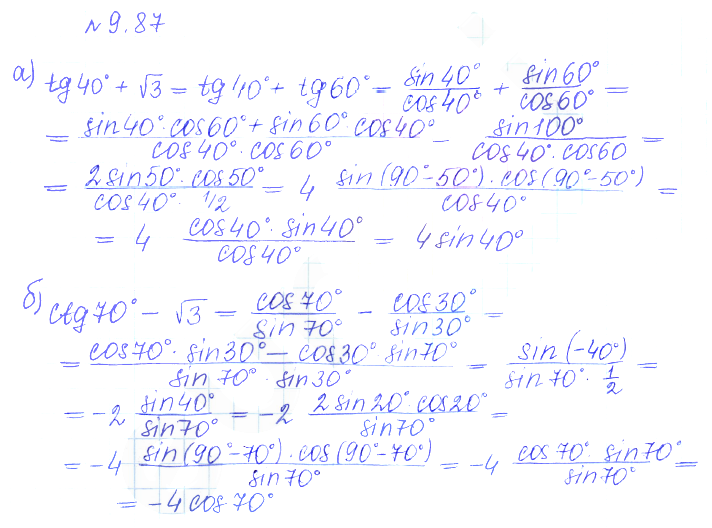 №9.87
а) tg40° + √3 = tg40° + tg60° = sin40°/cos40° + sin60°/cos60° =
= (sin40°·cos60° + sin60° cos40°)/(cos40°·cos60°) = sin100°/(cos40°·cos60) =
= (2sin50°·cos50°)/(cos40°·1/2) = 4 (sin(90°-50°)·cos(90°-50°))/cos40° =
= 4 (cos40°·sin40°)/cos40° = 4sin40°
б) ctg70° - √3 = cos70°/sin70° - cos30°/sin30° =
= (cos70°·sin30° - cos30° sin70°)/(sin70°·sin30°) = sin(-40°)/(sin70°·1/2) =
= -2 sin40°/sin70° = -2 (2sin20°·cos20°)/sin70° =
= -4 (sin(90°-70°)·cos(90°-70°))/sin70° = -4 (cos70°·sin70°)/sin70° =
= -4cos70°